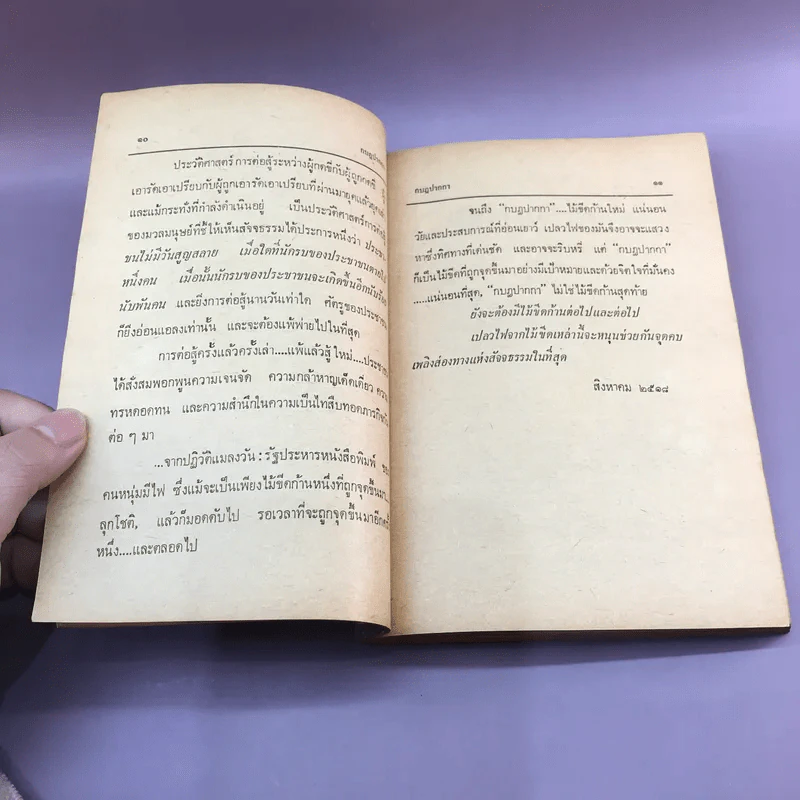 ๑๐
กบฏปากกา
ประวัติศาสตร์การต่อสู้ระหว่างผู้กดขี่กับผู้ถูกกดขี่
เอารัดเอาเปรียบกับผู้ถูกเอารัดเอาเปรียบที่ผ่านมายุคแล้วยุคเล่า
และแม้กระทั่งที่กำลังดำเนินอยู่ เป็นประวัติศาสตร์การต่อสู้
ของมวลมนุษย์ที่ชี้ให้เห็นสัจจธรรมได้ประการหนึ่งว่า
ขนไม่มีวันสูญสลาย เมื่อใดที่นักรบของประชาชนตายไป
หนึ่งคน เมื่อนั้นนักรบของประชาชนจะเกิดขึ้นอีกนับร้อย
นับพันคน และยิ่งการต่อสู้นานวันเท่าใด ศัตรูของประชาชน
ก็ยิ่งอ่อนแอลงเท่านั้น และจะต้องแพ้พ่ายไปในที่สุด
การต่อสู้ครั้งแล้วครั้งเล่า....แพ้แล้วสู้ใหม่....ประชาชน
ได้สั่งสมพอกพูนความเจนจัด ความกล้าหาญเด็ดเดี่ยว
ทรหดอดทน และความสำนึกในความเป็นไทสืบทอดภารกิจ
ต่อ ๆ มา
...จากปฏิวัติแมลงวัน : รัฐประหารหนังสือพิมพ์
คนหนุ่มมีไฟ ซึ่งแม้จะเป็นเพียงไม้ขีดก้านหนึ่งที่ถูกจุดขึ้นมา
ลุกโชติ, แล้วก็มอดดับไป รอเวลาที่จะถูกจุดขึ้นมาอีก
หนึ่ง....และตลอดไป
กบฏปากกา
๑๑
จนถึง “กบฏปากกา”....ไม้ขีดก้านใหม่ แน่นอน
วัยและประสบการณ์ที่อ่อนเยาว์ เปลวไฟของมันจึงอาจจะแสวง
หาซึ่งทิศทางที่เด่นชัด และอาจจะริบหรี่ แต่ “กบฏปากกา”
ก็เป็นไม้ขีดที่ถูกจุดขึ้นมาอย่างมีเป้าหมายและด้วยจิตใจที่มั่นคง
.....แน่นอนที่สุด, “กบฏปากกา” ไม่ใช่ไม้ขีดก้านสุดท้าย
ยังจะต้องมีไม้ขีดก้านต่อไปและต่อไป
เปลวไฟจากไม้ขีดเหล่านี้จะหนุนช่วยกันจุดคบ
เพลิงส่องทางแห่งสัจจธรรมในที่สุด
สิงหาคม ๒๕๑๘